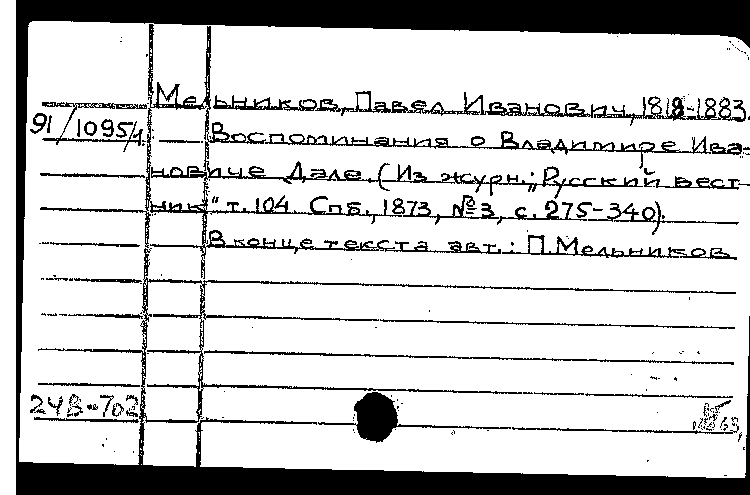 Мельников, Павел Иванович, 1818-1883.
91/1095/1. Воспоминания о Владимире Ива-
новиче Дале. (Из журн.: „Русский вест
ник" т. 104. Спб., 1873, №3, с. 275-340).
В конце текста авт.: П.Мельников
24В-702